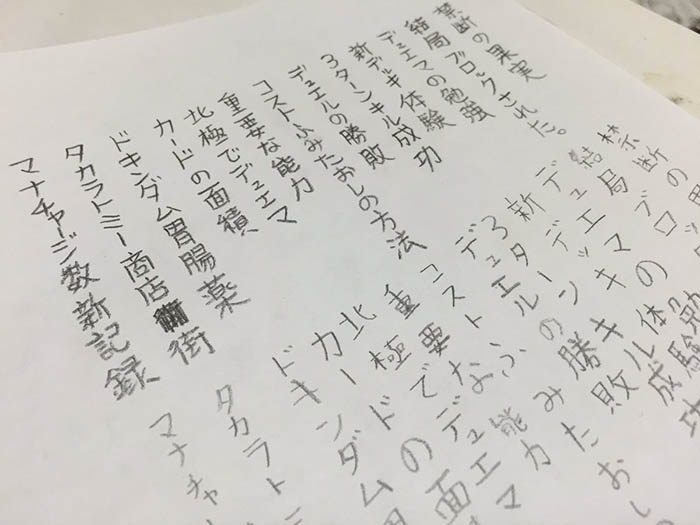 禁断の果実
結局ブロックされた。
デュエマの勉強
新デッキ体験
3ターンキル成功
デュエルの勝敗
コストふみたおしの方法
重要な能力
北極でデュエマ
カードの面積
ドキンダム胃腸薬
タカラトミー商店街
マナチャージ数新記録
禁断の
結局ブロック
デュエマの
新デッキ体験
3ターンキル成功
デュエルの勝敗
コストふみたおし
重要な能力
北極でデュエマ
カードの面
ドキンダム
タカラト
マナチャ